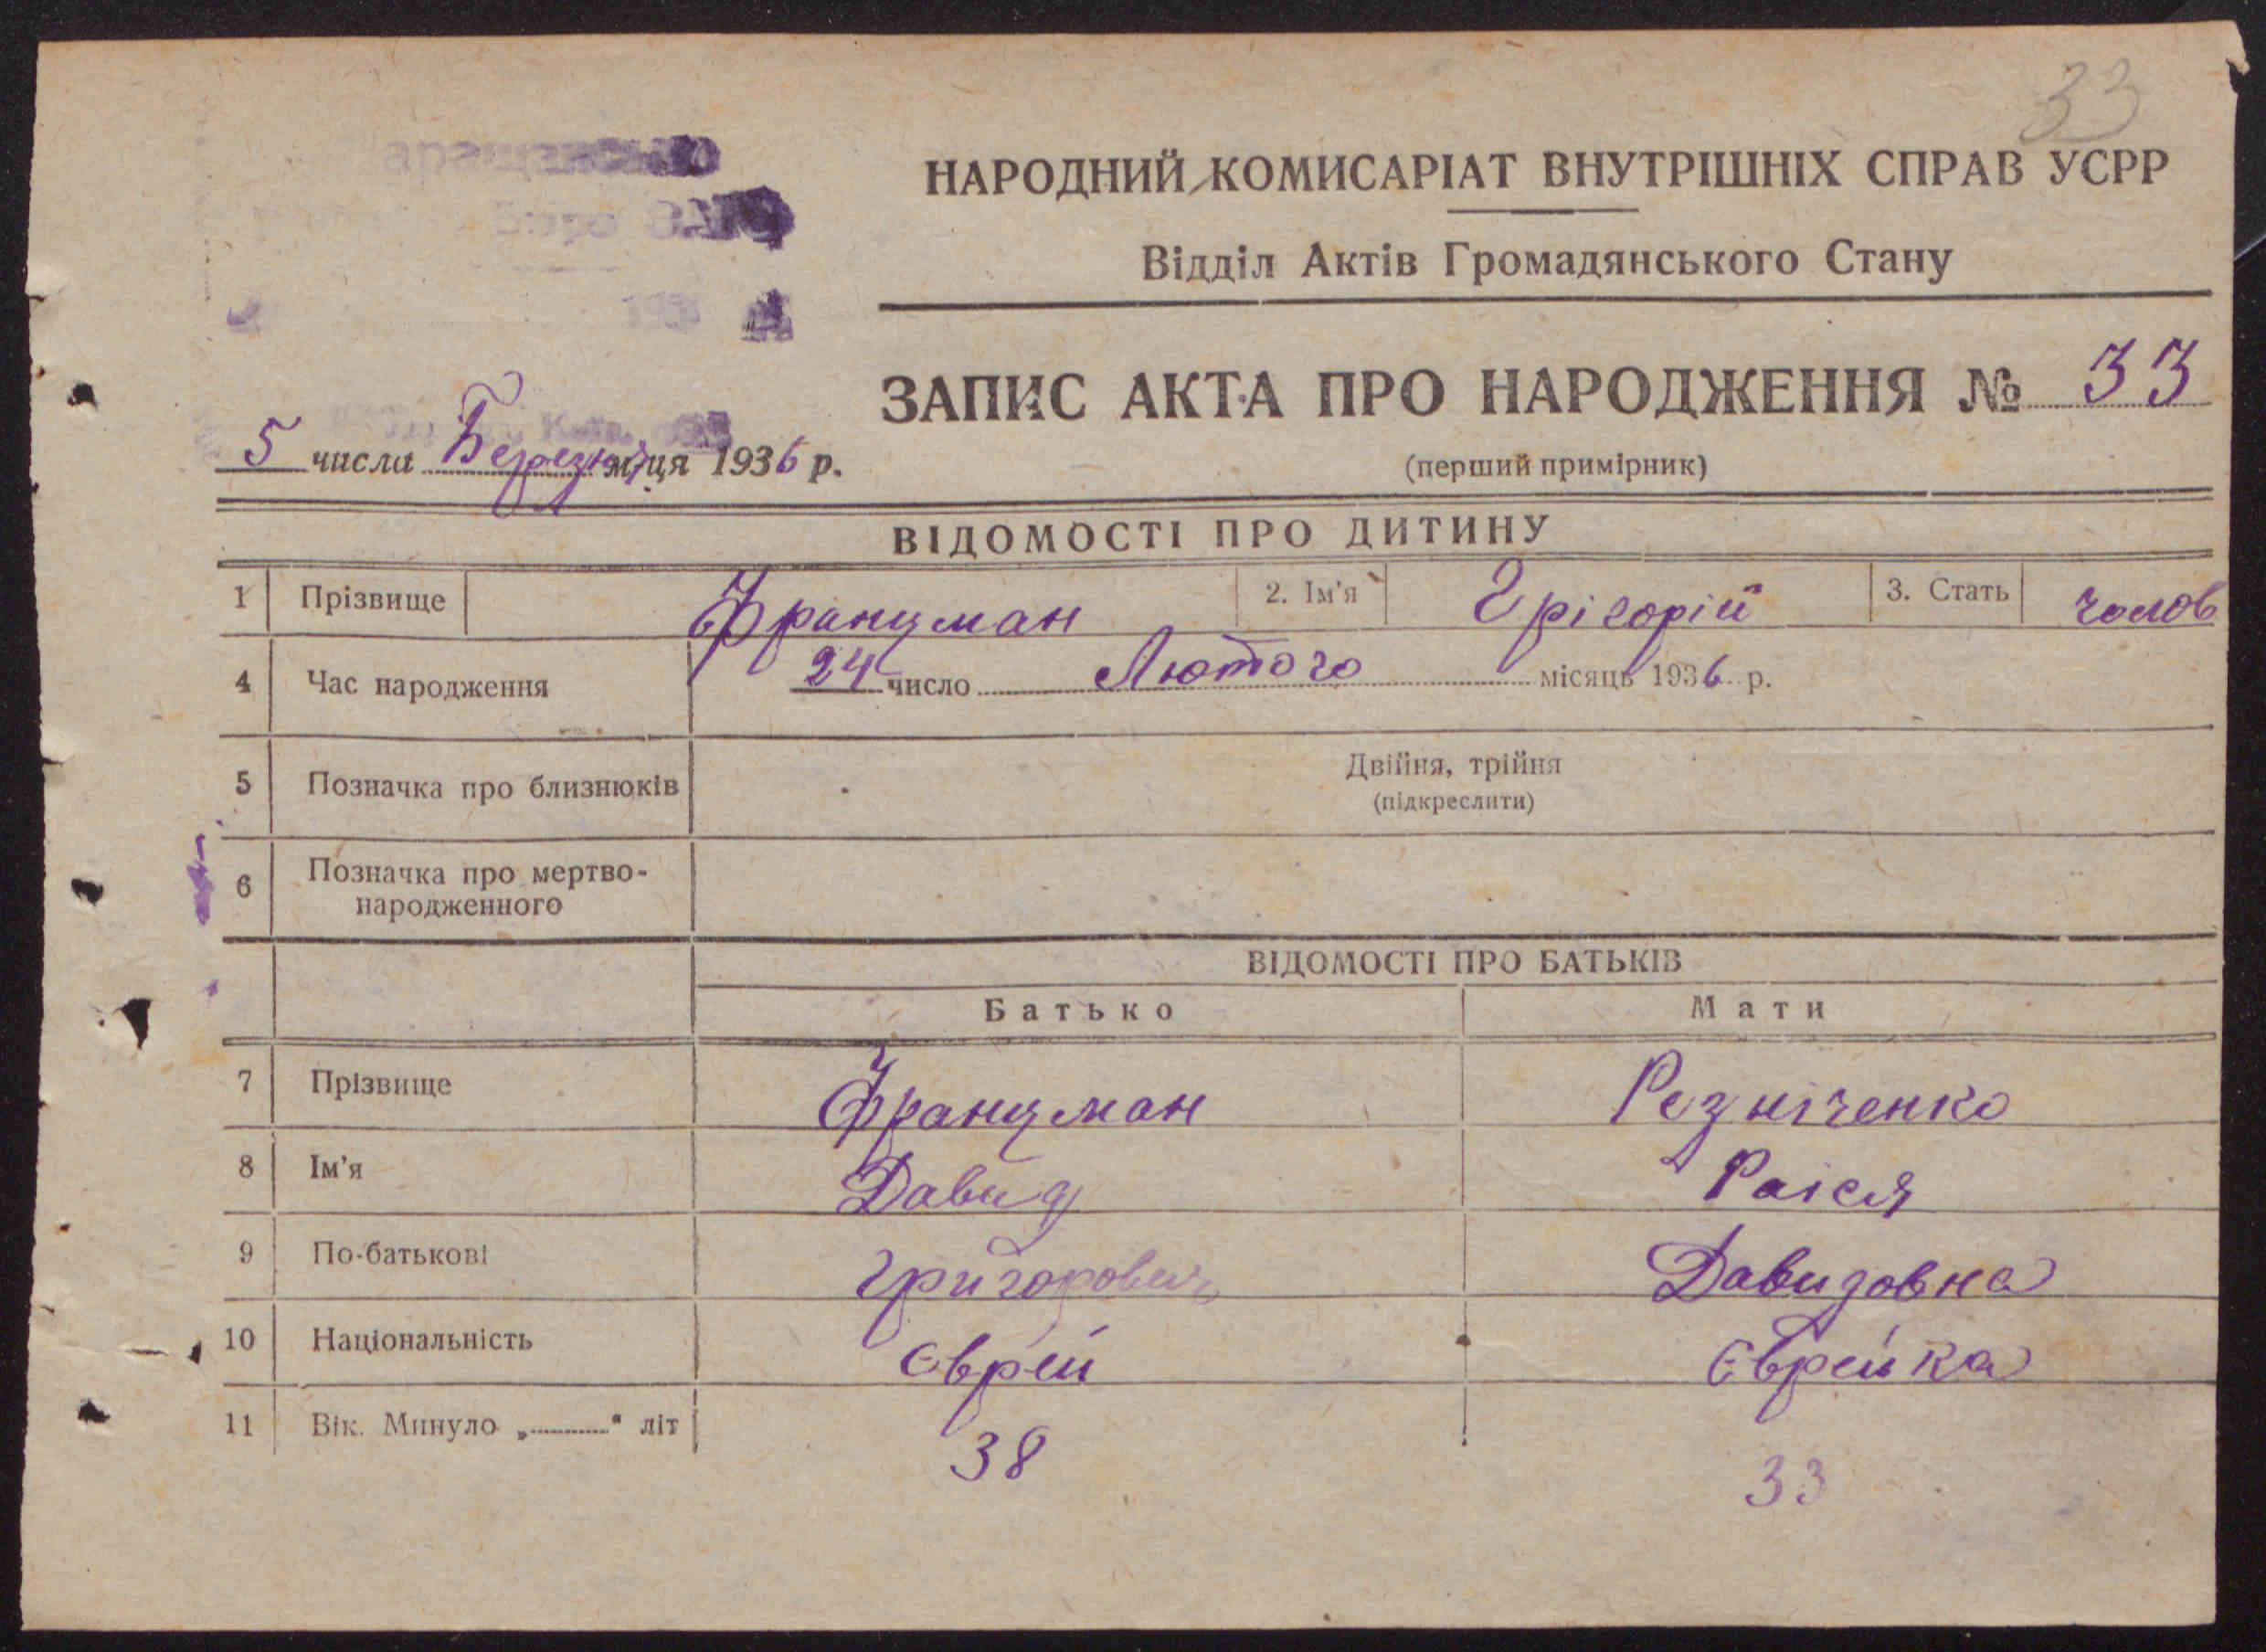 33
Бюро ЗАГС
193
НАРОДНИЙ КОМИСАРІАТ ВНУТРІШНІХ СПРАВ УСРР
Відділ Актів Громадянського Стану
ЗАПИС АКТА ПРО НАРОДЖЕННЯ № 33
5 числа Березня м-ця 1936 р.
(перший примірник)
ВІДОМОСТІ ПРО ДИТИНУ
1 Прізвище Француман 2. Ім'я Грігорій 3. Стать чолов
4 Час народження 24 число Лютого місяць 1936 р.
5 Позначка про близнюків Двійня, трійня
(підкреслити)
6 Позначка про мертво-
народженного
ВІДОМОСТІ ПРО БАТЬКІВ
Батько Мати
7 Прізвище Француман Резніченко
8 Ім'я Давид Раіся
9 По-батькові Григорович Давидовна
10 Національність Єврей Єврейка
11 Вік. Минуло „ “ літ 38 33